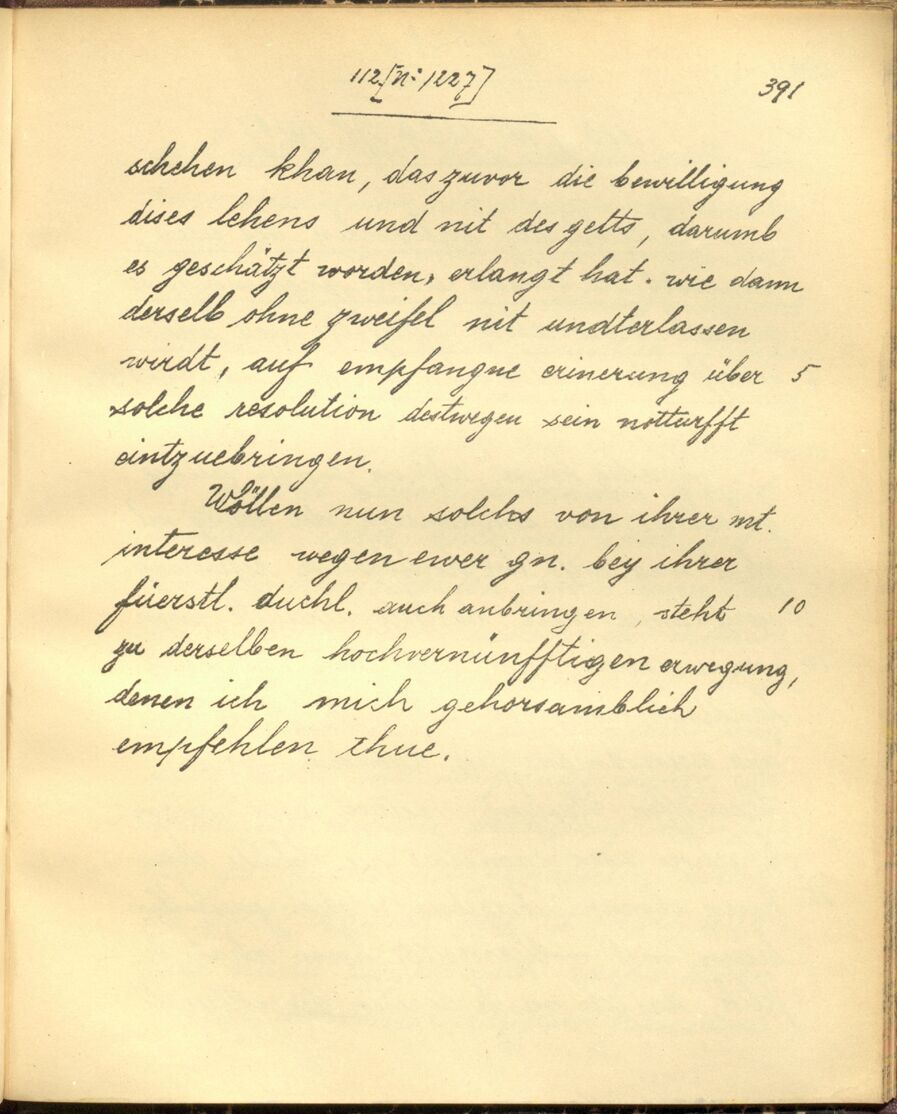 112 [N: 1227]
391
schehen khan, das zuvor die bewilligung
dises lehens und nit des gelts, darumb
es geschätzt worden, erlangt hat. wie dann
derselb ohne zweifel nit undterlassen
wirdt, auf empfangne erinerung über 5
solche resolution destwegen sein notturfft
eintzuebringen.
Wöllen nun solchs von ihrer mt.
interesse wegen ewer gn. bey ihrer
füerstl. duchl. auch anbringen, steht 10
zu derselben hochvernünfftigen erwegung,
denen ich mich gehorsamblich
empfehlen thue.